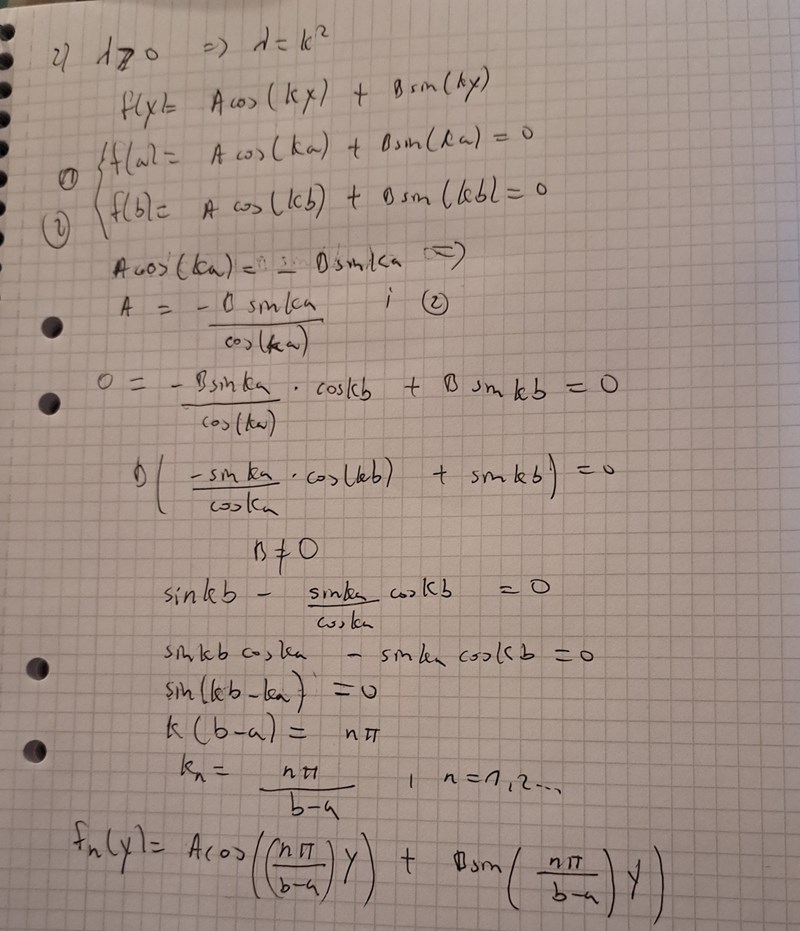 2) λ > 0 => λ = k²
f(y) = A cos(ky) + B sin(ky)
① { f(a) = A cos(ka) + B sin(ka) = 0
② { f(b) = A cos(kb) + B sin(kb) = 0
A cos(ka) = - B sin ka =>
A = - B sin ka / cos(ka) i ②
0 = - B sin ka / cos(ka) · cos kb + B sin kb = 0
B ( - sin ka / cos ka · cos(kb) + sin kb ) = 0
B ≠ 0
sin kb - sin ka / cos ka cos kb = 0
sin kb cos ka - sin ka cos kb = 0
sin(kb - ka) = 0
k(b-a) = nπ
kₙ = nπ / b-a , n = 1, 2 ...
fₙ(y) = A cos((nπ / b-a) y) + B sin(nπ / b-a) y)